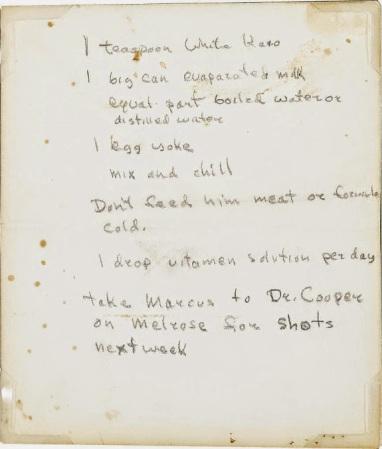 1 teaspoon White Karo
1 big can evaporated milk
equal part boiled water or
distilled water
1 egg yoke
mix and chill
Don't feed him meat or formula
cold.
1 drop vitamen solution per day
take Marcus to Dr. Cooper
on Melrose for shots
next week